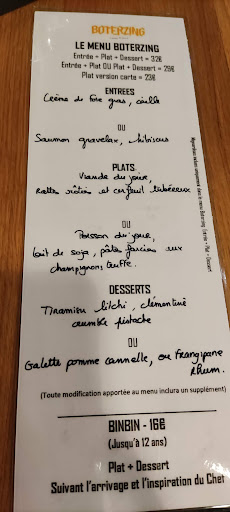 BOTERZING
LE MENU BOTERZING
Entrée + Plat + Dessert = 32€
Entrée + Plat OU Plat + Dessert = 26€
Plat version carte = 23€
ENTREES
Crème de foie gras, caille
OU
Saumon gravelax, hibiscus
PLATS
Viande du jour,
Rattes rôties et cerfeuil tubéreux
OU
Poisson du jour,
lait de soja, pâtes farcies aux
champignons truffe.
DESSERTS
Tiramisu litchi, clémentine
crumble pistache
OU
Galette pomme cannelle, ou Frangipane
Rhum.
(Toute modification apportée au menu inclura un supplément)
BINBIN - 16€
(Jusqu'à 12 ans)
Plat + Dessert
Suivant l'arrivage et l'inspiration du Chef